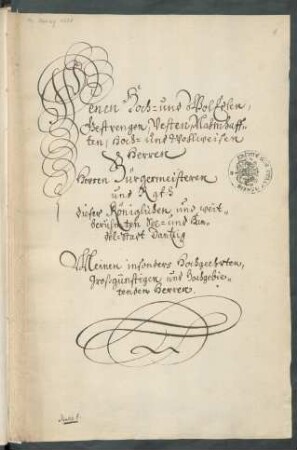 Denen Hoch- und WolEdlen,
Gestrengen, Vesten, Namhaff-
ten, Hoch- und Wollweisen
Herren
Herren Bürgermeisteren
und Raht
dieser Königlichen und weit-
berühmten See- und Han-
del-Stadt Dantzig
Meinen insonders Hochgeehrten,
Großgünstigen und Hochgebie-
tenden Herren.